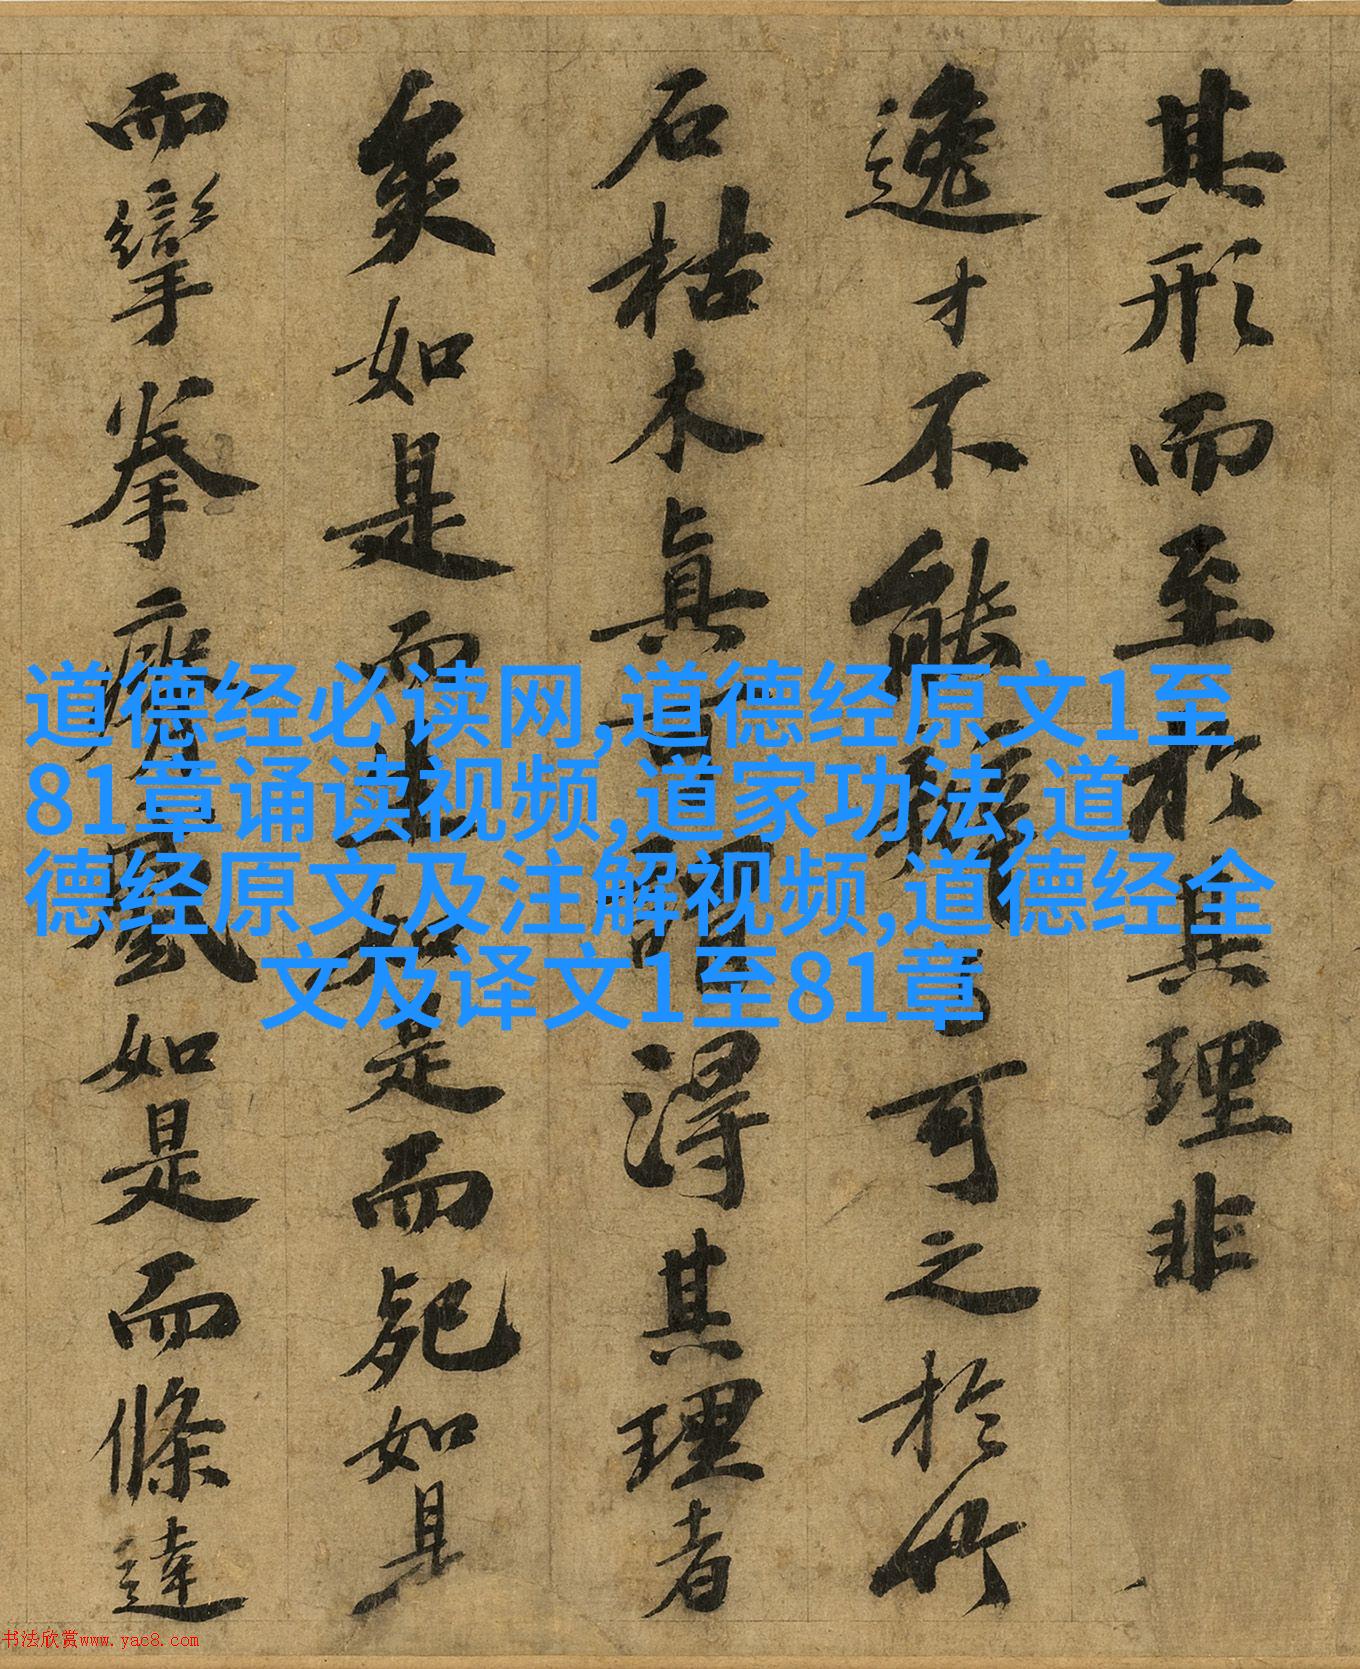 其形而至於其理非
逸才不能辨可之於竹
石枯木真可謂得其理者
矣如是而生如是而死如是
而攣拳瘠蹙如是而條達
道德经必读网,道德经原文1至
81章诵读视频,道家功法,道
德经原文及注解视频,道德经全
文及译文1至81章
书法欣赏www.yac8.com